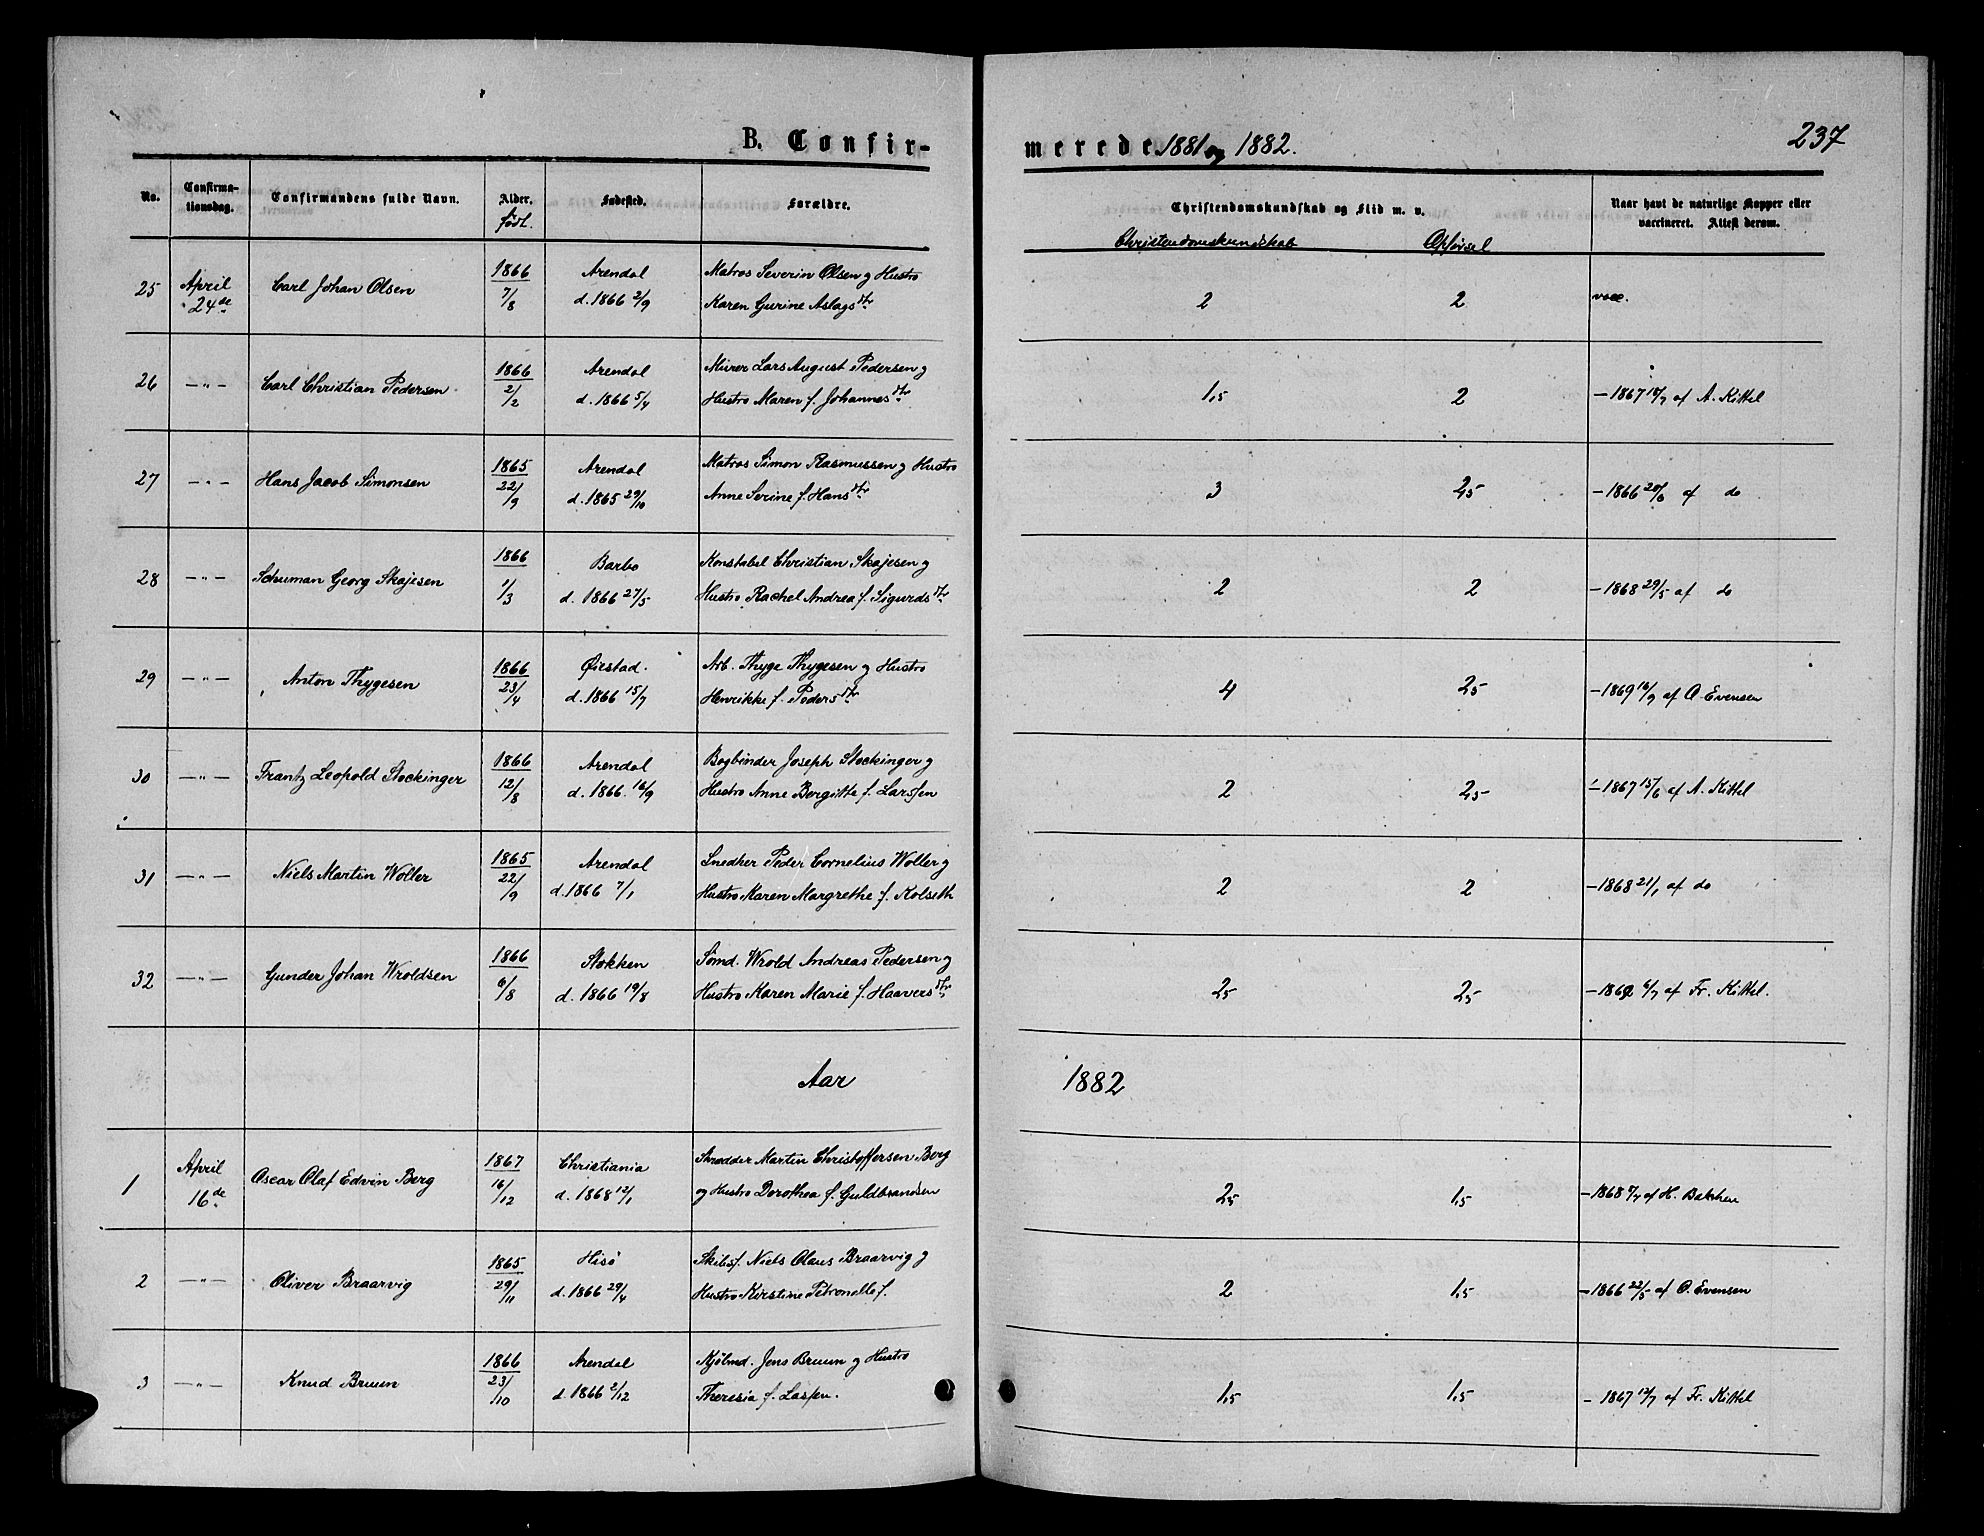 B. Confir-
merede 1881 og 1882.
237
No.
Confirma-
tionsdag.
Confirmandens fulde Navn.
Alder.
født.
Fødested.
Forældre.
Christendomskundskab og Flid m. v.
Christendomskundskab Opførsel
Naar havt de naturlige Kopper eller
vaccineret. Attest derom.
25 April 24de Carl Johan Olsen 1866 7/8 Arendal d. 1866 2/9 Matros Severin Olsen og Hustro
Karen Gurine Aslagsdtr 2 2 vacc.
26 —"— Carl Christian Pedersen 1866 2/2 Arendal d. 1866 5/4 Murer Lars August Pedersen og
Hustro Maren f. Johannesdtr 1,5 2 — 1867 18/7 af A. Kittel
27 —"— Hans Jacob Simonsen 1865 22/9 Arendal d. 1865 29/10 Matros Simon Rasmussen og Hustro
Anne Serine f. Hansdtr 3 2,5 — 1866 20/6 af do
28 —"— Schuman Georg Skajesen 1866 1/3 Barbo d. 1866 27/5 Konstabel Christian Skajesen og
Hustro Rachel Andrea f. Sigurdsdtr 2 2 — 1868 29/5 af do
29 —"— Anton Thygesen 1866 23/4 Øiestad. d. 1866 15/7 Arb. Thyge Thygesen og Hustro
Henrikke f. Pedersdtr 4 2,5 — 1869 16/7 af O. Evensen
30 —"— Frantz Leopold Stockinger 1866 12/8 Arendal d. 1866 16/9 Bogbinder Joseph Stockinger og
Hustro Anne Bergitte f. Larssen 2 2,5 — 1867 15/6 af A. Kittel
31 —"— Niels Martin Woller 1865 22/9 Arendal d. 1866 7/1 Snedker Peder Cornelius Woller og
Hustro Karen Margrethe f. Kolseth 2 2 — 1868 21/1 af do
32 —"— Gunder Johan Wroldsen 1866 6/8 Stokken d. 1866 19/8 Sømd. Wrold Andreas Pedersen og
Hustro Karen Marie f. Haaversdtr 2,5 2,5 — 1869 6/7 af Fr. Kittel.
Aar 1882
1 April 16de Oscar Olaf Edvin Berg 1867 16/12 Christiania d. 1868 12/1 Skrædder Martin Christoffersen Berg
og Hustro Dorothea f. Guldbrandsen 2,5 1,5 — 1868 7/7 af H. Bakken
2 —"— Oliver Braarvig 1865 29/11 Hisø d. 1866 29/4 Skibsf. Niels Olaus Braarvig og
Hustro Kirstine Petronelle f. 2 1,5 — 1866 22/5 af O. Evensen
3 —"— Knud Bruun 1866 23/10 Arendal d. 1866 2/12 Kjøbmd. Jens Bruun og Hustro
Theresia f. Lassen. 1,5 1,5 — 1867 12/7 af Fr. Kittel